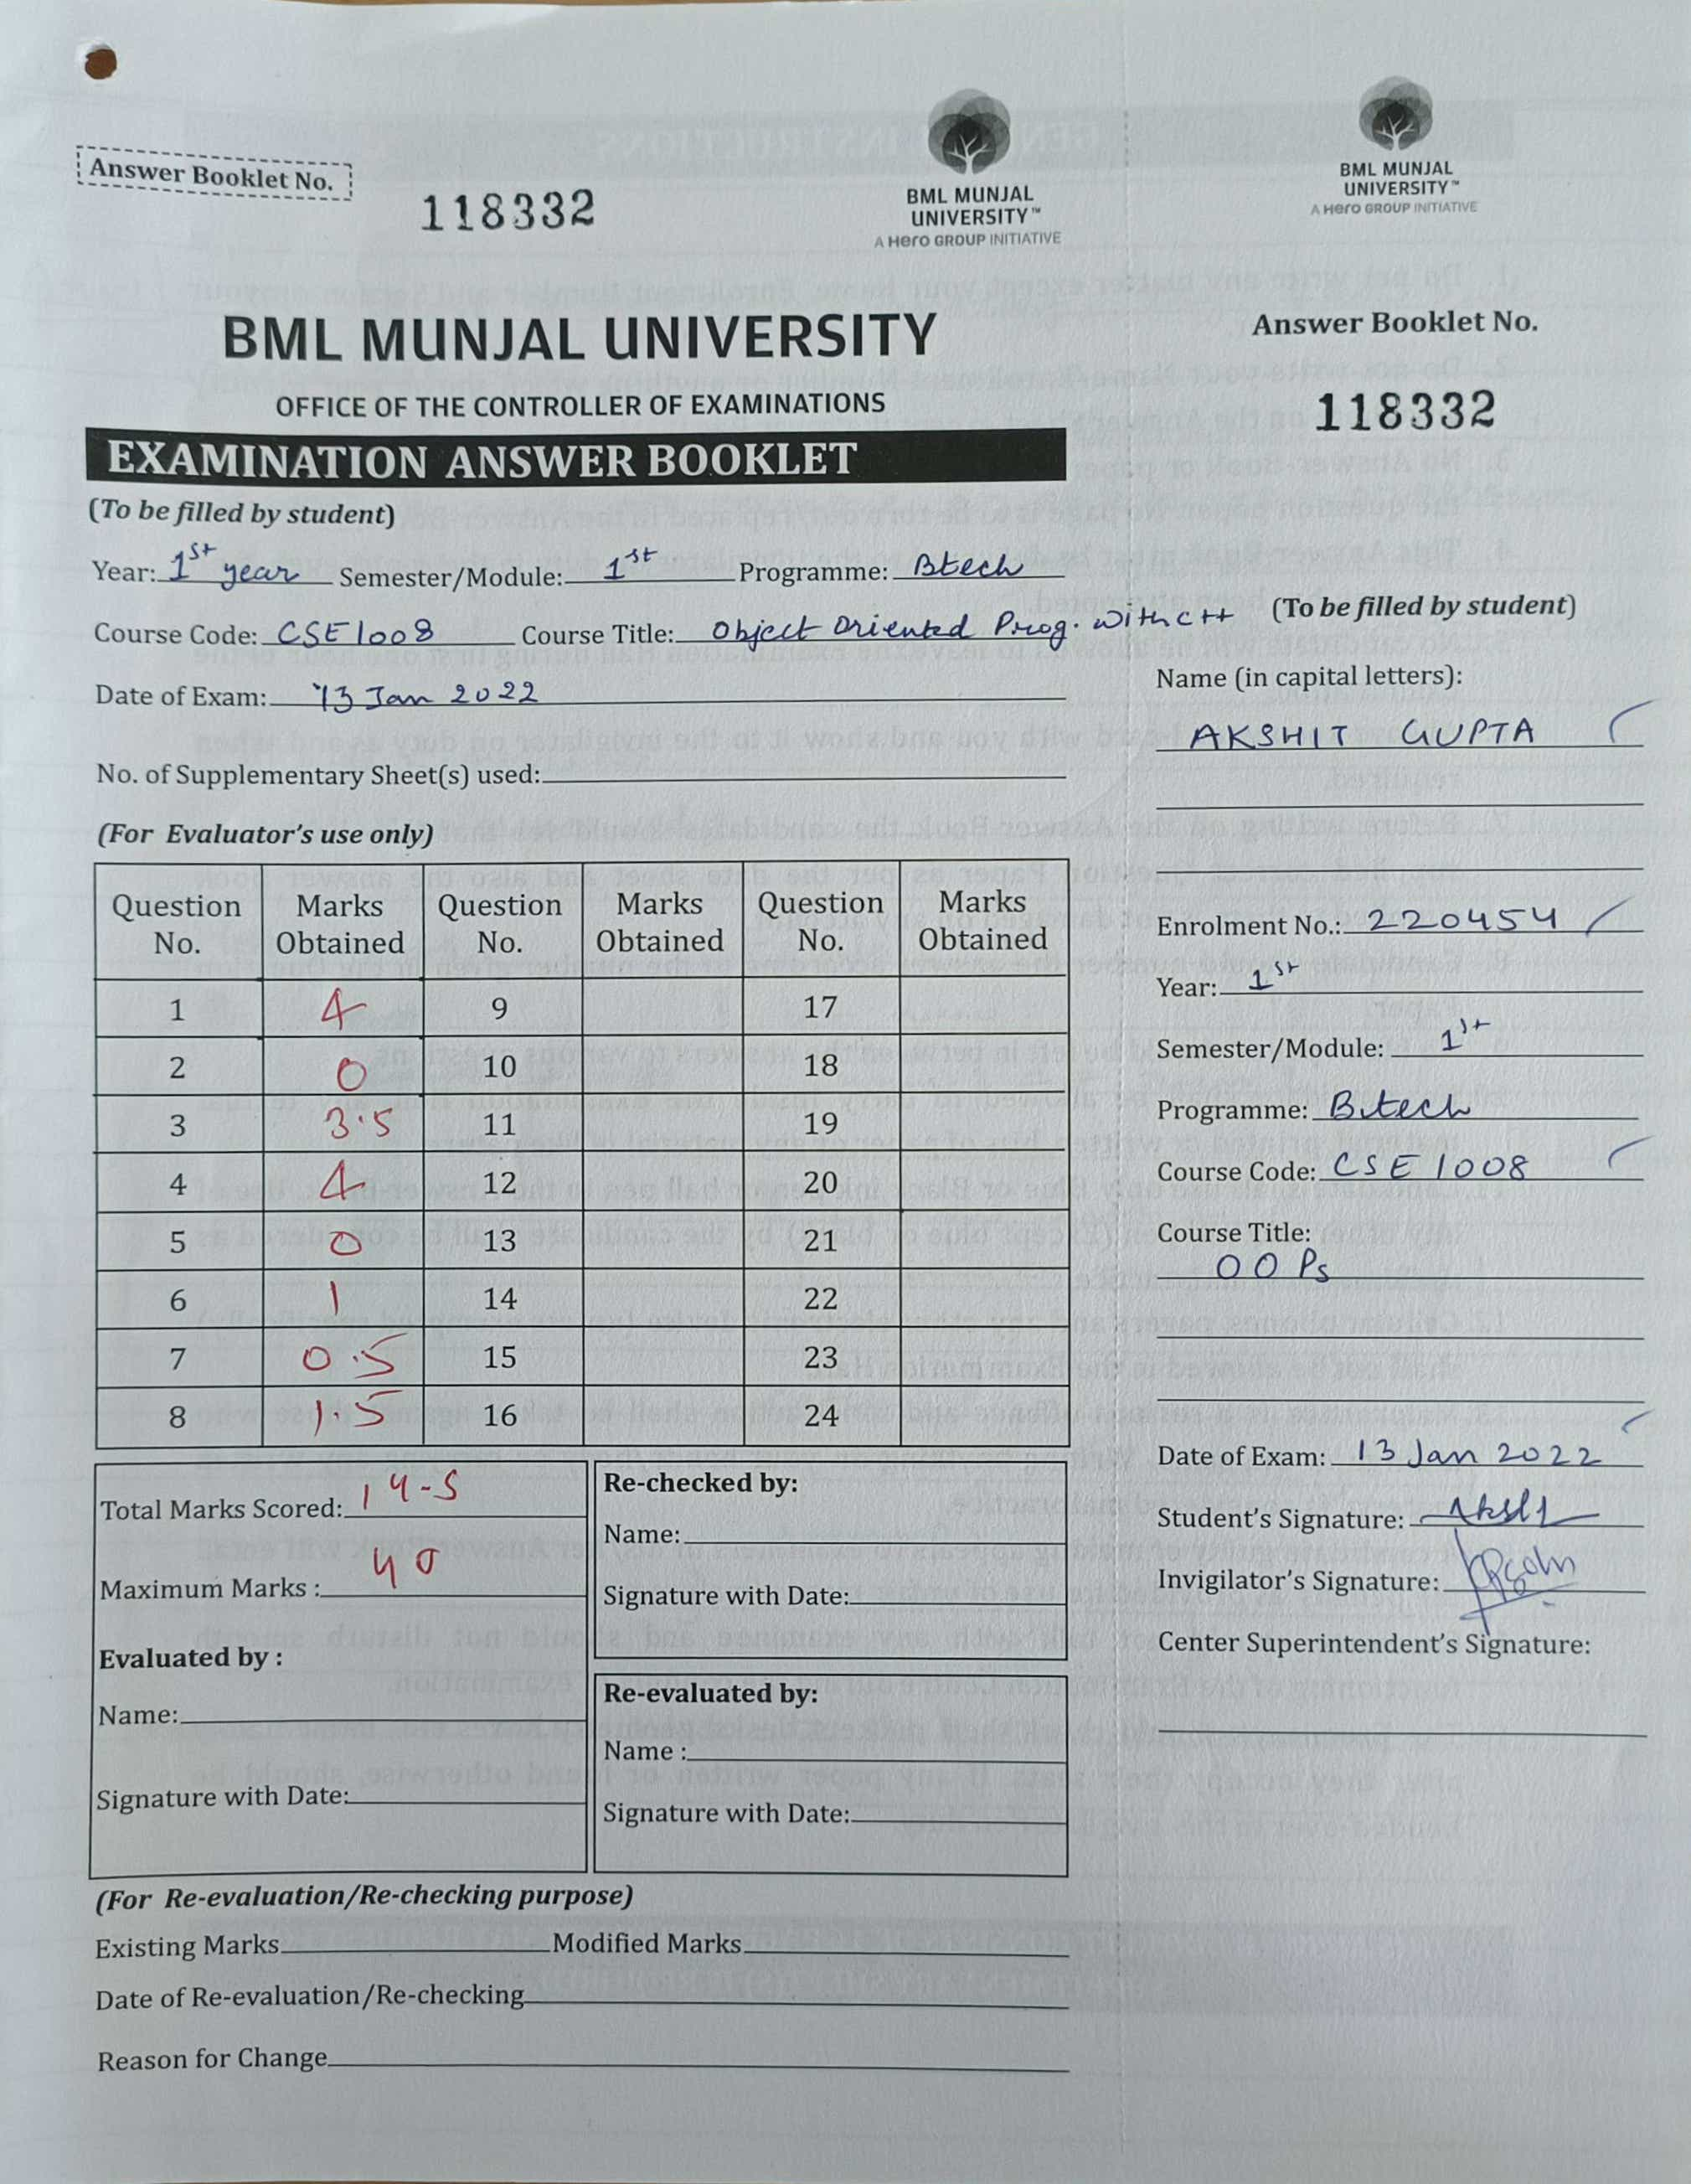 Answer Booklet No.
118332
BML MUNJAL
UNIVERSITY™
A Hero GROUP INITIATIVE
BML MUNJAL UNIVERSITY
OFFICE OF THE CONTROLLER OF EXAMINATIONS
EXAMINATION ANSWER BOOKLET
(To be filled by student)
Year: 1st year Semester/Module: 1st Programme: Btech
Course Code: CSE1008 Course Title: Object Oriented Prog. with c++
Date of Exam: 13 Jan 2022
No. of Supplementary Sheet(s) used:
(For Evaluator's use only)
Question No. Marks Obtained Question No. Marks Obtained Question No. Marks Obtained
1 4 9 17
2 0 10 18
3 3.5 11 19
4 4 12 20
5 0 13 21
6 1 14 22
7 0.5 15 23
8 1.5 16 24
Total Marks Scored: 14-5
Maximum Marks : 40
Evaluated by :
Name:
Signature with Date:
Re-checked by:
Name:
Signature with Date:
Re-evaluated by:
Name :
Signature with Date:
(For Re-evaluation/Re-checking purpose)
Existing Marks Modified Marks
Date of Re-evaluation/Re-checking
Reason for Change
BML MUNJAL
UNIVERSITY™
A Hero GROUP INITIATIVE
Answer Booklet No.
118332
(To be filled by student)
Name (in capital letters):
AKSHIT GUPTA
Enrolment No.: 220454
Year: 1st
Semester/Module: 1st
Programme: Btech
Course Code: CSE 1008
Course Title:
OOPs
Date of Exam: 13 Jan 2022
Student's Signature:
Invigilator's Signature:
Center Superintendent's Signature: